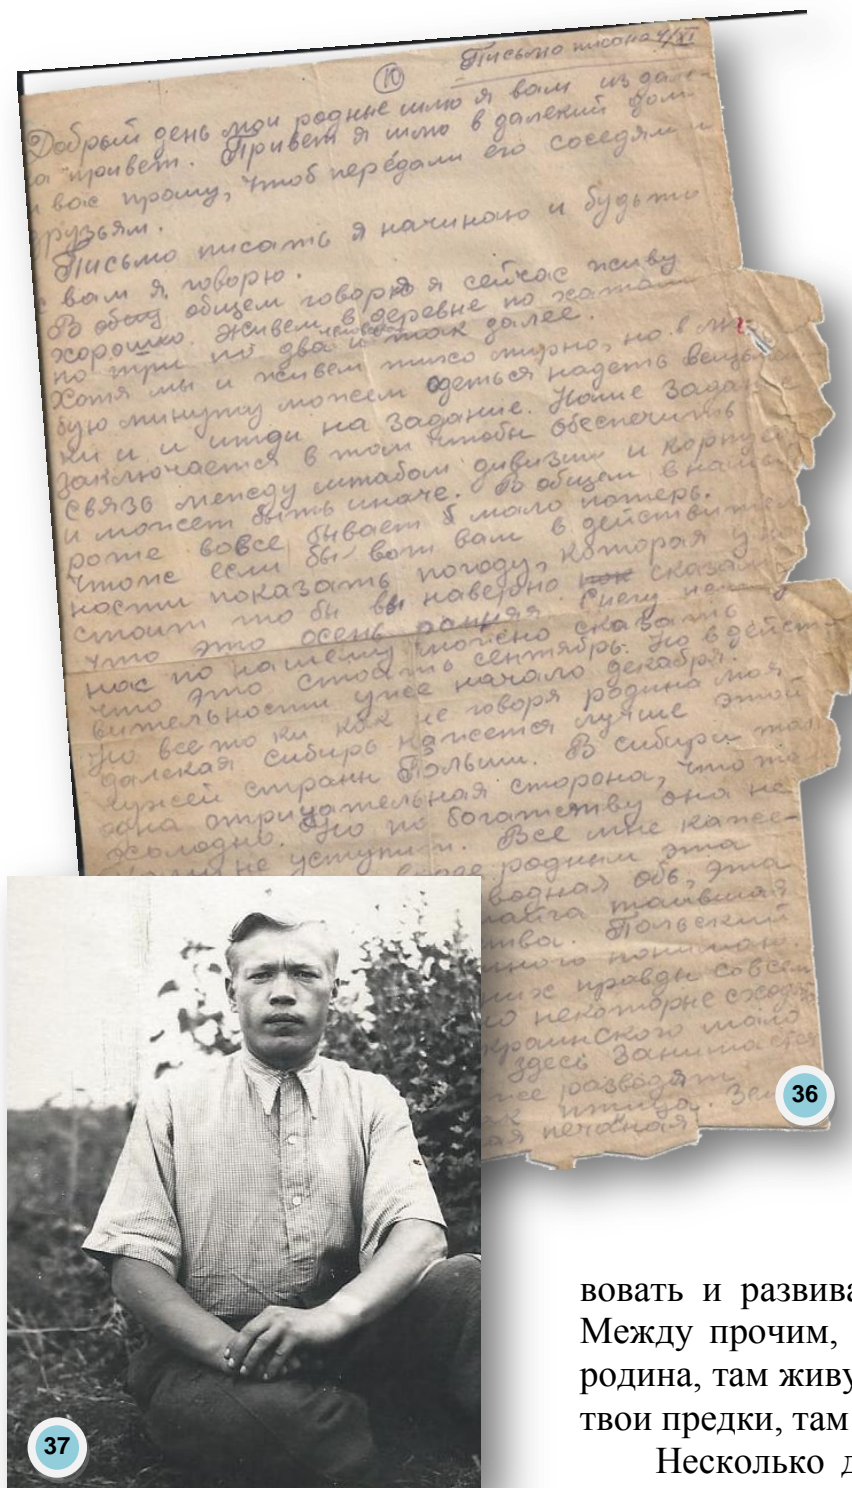 ⑩ Письмо писано 4/XI
Добрый день мои родные шлю я вам из дале-
ка привет. Привет я шлю в далекий дом
и вас прошу, чтоб передали его соседям и
друзьям.
Письмо писать я начинаю и будьте
вам я говорю.
В общем говоря я сейчас живу
хорошо. Живем в деревне по хатам
по три по два человека и так далее.
Хотя мы и живем тихо мирно, но в лю-
бую минуту можем одеться надеть вещмеш-
ки и и итди на задание. Наше задание
заключается в том чтобы обеспечить
связь между штабом дивизии и корпуса
и может быть иначе. В общем в нашей
роте вовсе бывает мало потерь.
Чтоже если бы вам в действитель
ности показать погоду, которая у нас
стоит то бы вы наверно сказали
что это осень ранняя. Снегу нету
нас по нашему можно сказать
что это стоить сентябрь. Но в дейст-
вительности уже начало декабря.
Но все то ки как не говоря родина моя
далекая сибирь кажется лучше этой
чужей страны Польши. В сибири там
одна отрицательная сторона, что
холодно. Но по богатству она не
не уступит. Все мне каже-
родным эта
водная обь, эта
тайга таившая
Польский
много понимаю.
них правды совсем
некоторые сходят
украинского мало
здесь занимаются
разводят
птица.
печаная
36
37
вовать и развива
Между прочим,
родина, там живу
твои предки, там
Несколько д